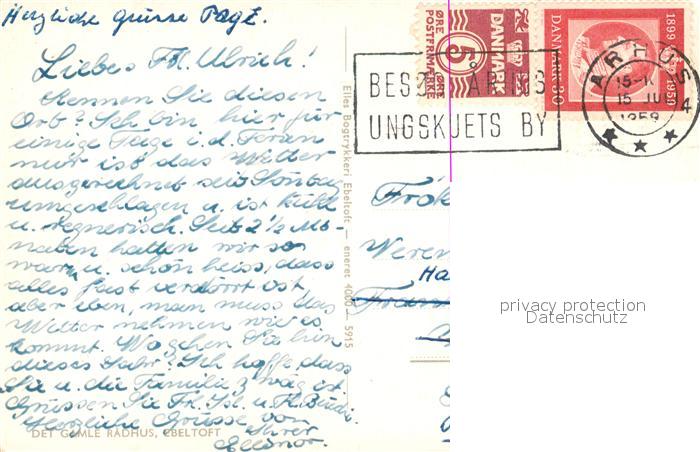 Herzliche Grüsse Page.
Liebes Frl. Ulrich!
Kennen Sie diesen
Ort? Ich bin hier für
einige Tage i. d. Ferien
nur ist das Wetter
ausgerechnet seit Sonntag
umgeschlagen u. ist kühl
u. regnerisch. Seit 2½ Mo-
naten hatten wir so
warm u. schön heiss, dass
alles fast verdorrt ist,
aber eben, man muss das
Wetter nehmen wie es
kommt. Wo gehen Sie hin
dieses Jahr? Ich hoffe, dass
Sie u. die Familie zwäg ist.
Grüssen Sie Frl.
Herzliche Grüsse von
Ihrer
Ellinor.
DET GAMLE RÅDHUS, EBELTOFT
Elles Bogtrykkeri Ebeltoft — eneret 4000 — 5915
5 ØRE
POSTFRIMÆRKE
DANMARK
ØRE
1899 1959
DANMARK 30
BESØG ARHUS
UNGSKUETS BY
ARHUS
15 JU
1959
4
Frök
Weren
Ha
privacy protection
Datenschutz